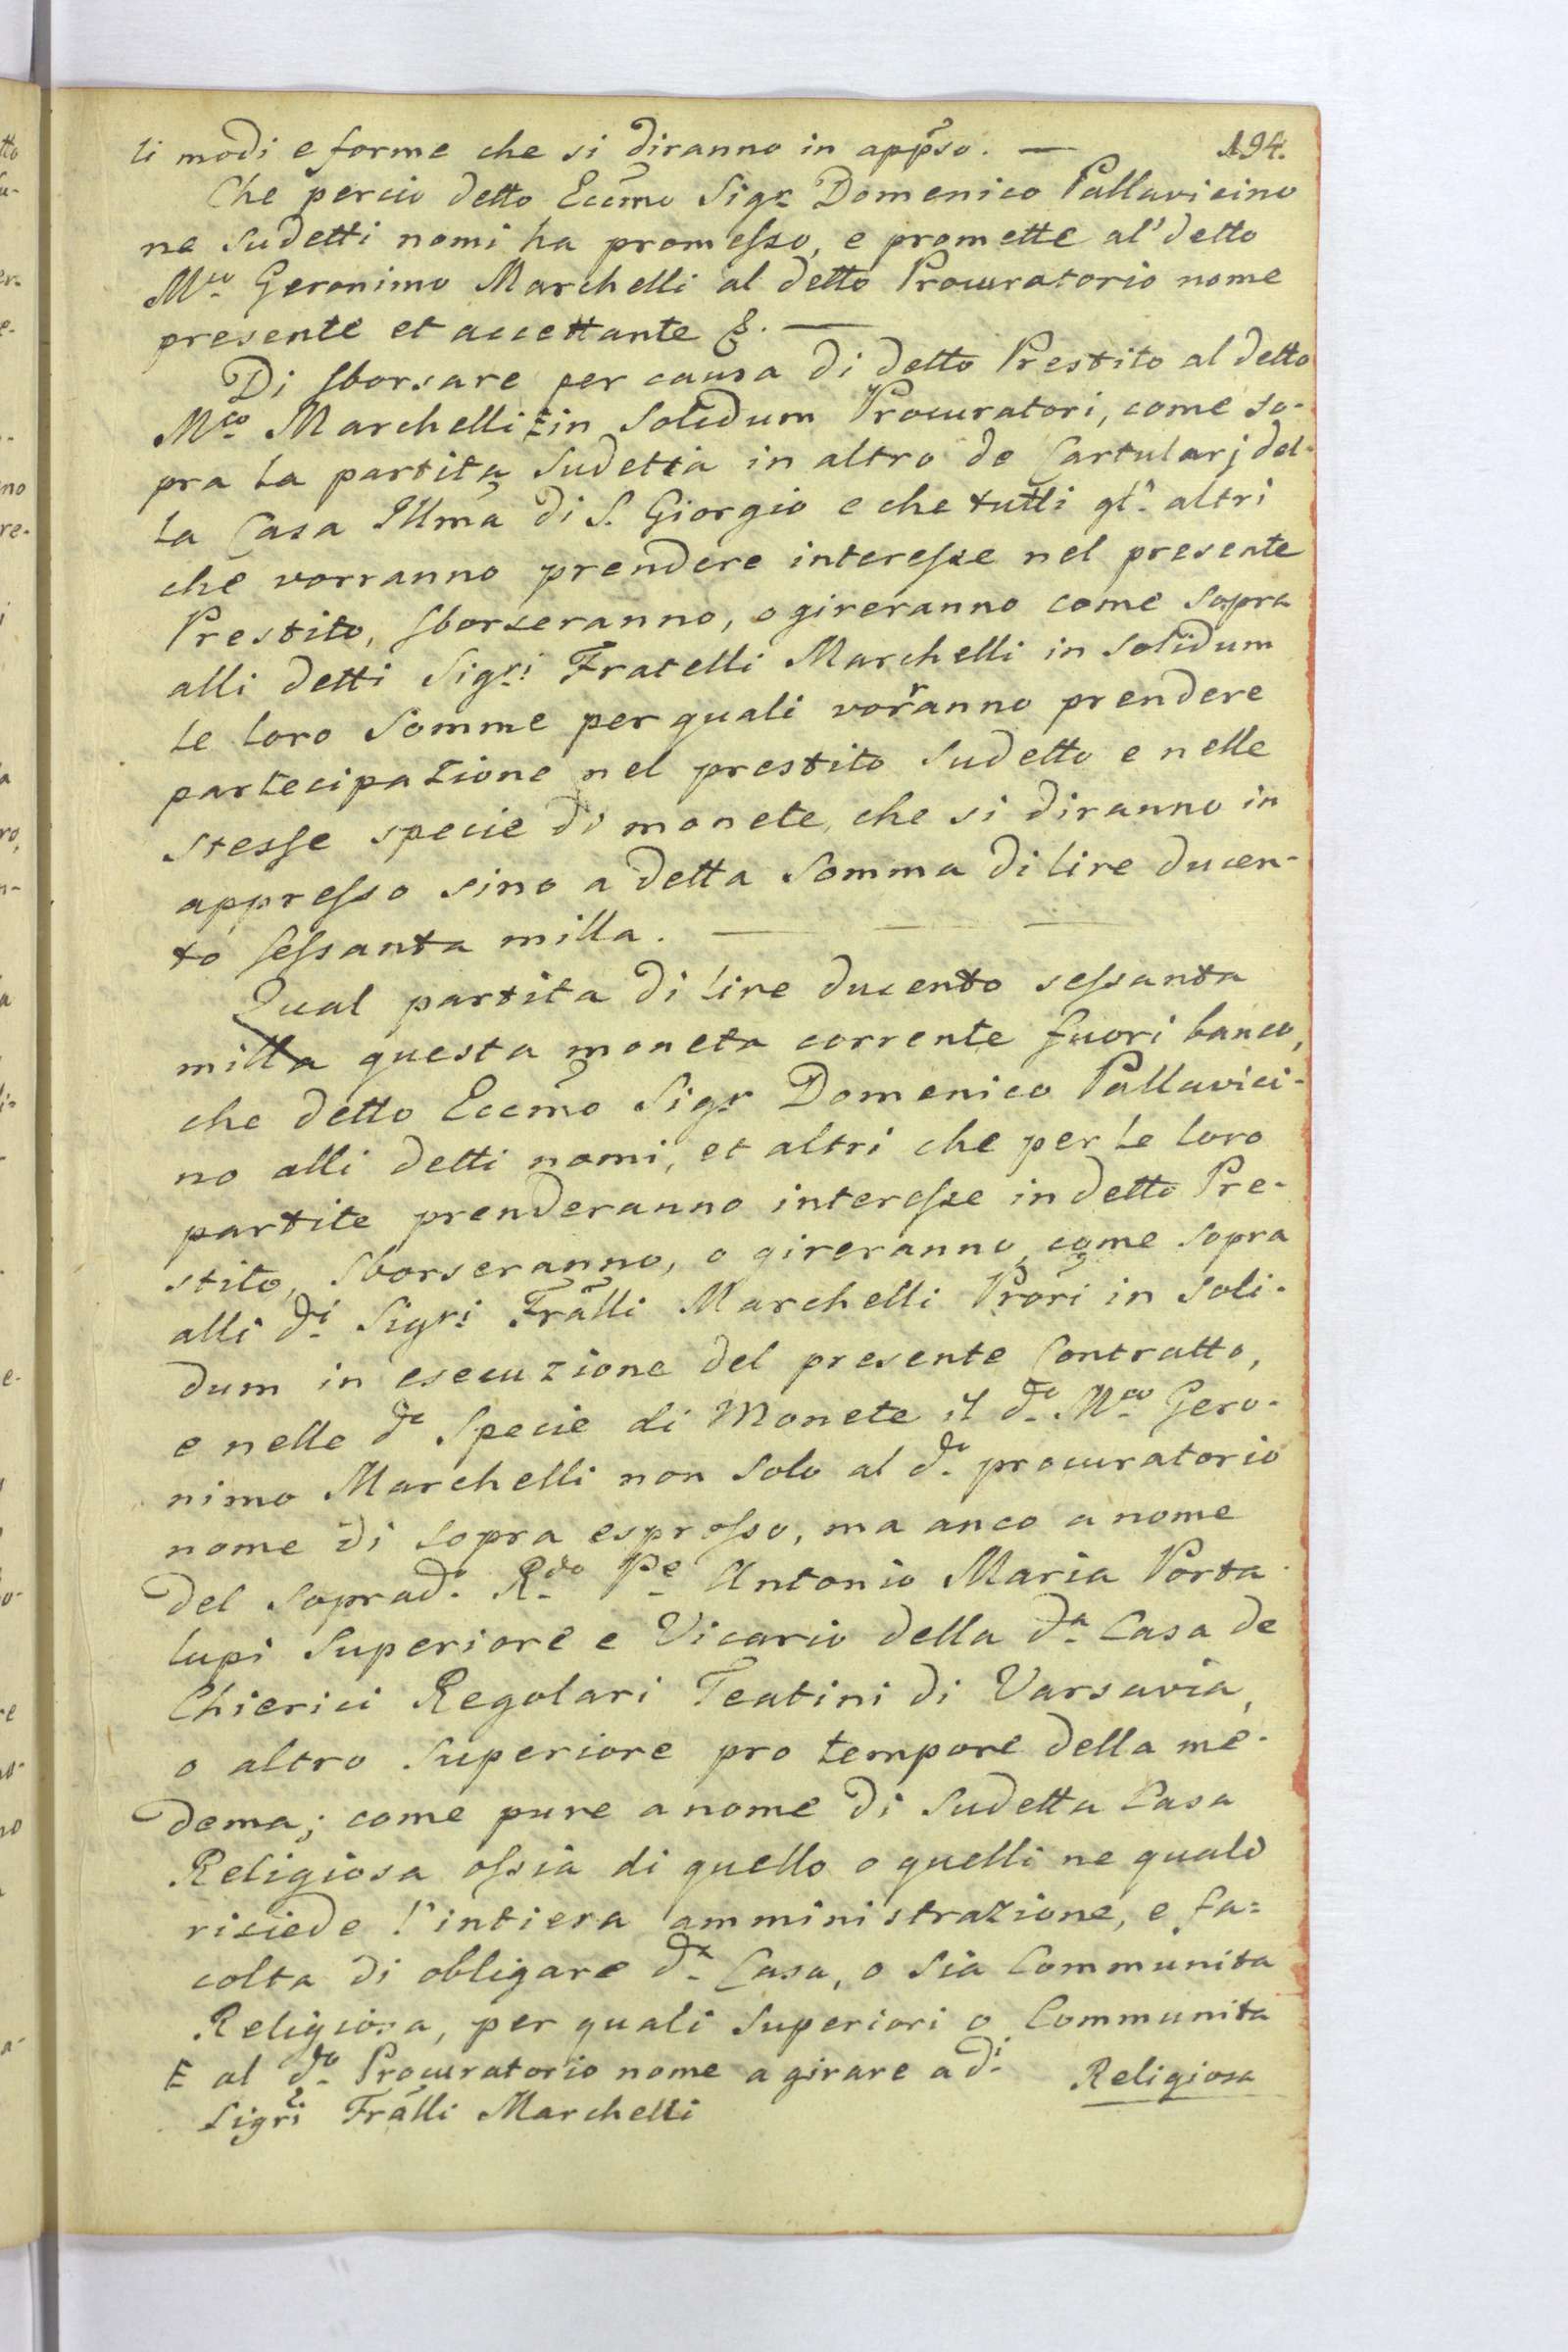 194.
ti modi e forme che si diranno in app̃so. —
Che percio detto Eccm̃o Sigr Domenico Pallavicino
ne sudetti nomi ha promesso, e promette al' detto
Mco Geronimo Marchelli al detto Procuratorio nome
presente et accettante &. —
Di sborsare per causa di detto Prestito al detto
Mco Marchelli E in solidum Procuratori, come so-
pra la partita sudetta in altro de Cartularj del-
la Casa Illm̃a di S. Giorgio e che tutti gli altri
che vorranno prendere interesse nel presente
Prestito, sborseranno, o gireranno come sopra
alli detti Sigri Fratelli Marchelli in solidum
le loro somme per quali vorranno prendere
partecipazione nel prestito sudetto e nelle
stesse specie di monete, che si diranno in
appresso sino a detta somma di lire ducen-
to sessanta milla. —
Qual partita di lire ducento sessanta
milla questa moneta corrente fuori banco,
che detto Eccm̃o Sigr Domenico Pallavici-
no alli detti nomi, et altri che per le loro
partite prenderanno interesse in detto Pre-
stito, sborseranno, o gireranno, come sopra
alli di Sigri Frãlli Marchelli Prõri in soli-
dum in esecuzione del presente Contratto,
e nelle de specie di Monete il do Mco Gero-
nimo Marchelli non solo al do procuratorio
nome di sopra espresso, ma anco a nome
del soprado Rdo Pe Antonio Maria Porta
lupi Superiore e Vicario della da Casa de
Chierici Regolari Teatini di Varsavia,
o altro Superiore pro tempore della me-
dema; come pure a nome di sudetta Casa
Religiosa ossia di quello o quelli ne quali
risiede l'intiera amministrazione, e fa=
colta di obligare da Casa, o sia Communita
Religiosa, per quali Superiori o Communita
Religiosa
E al do Procuratorio nome a girare a di
Sigri Frãlli Marchelli